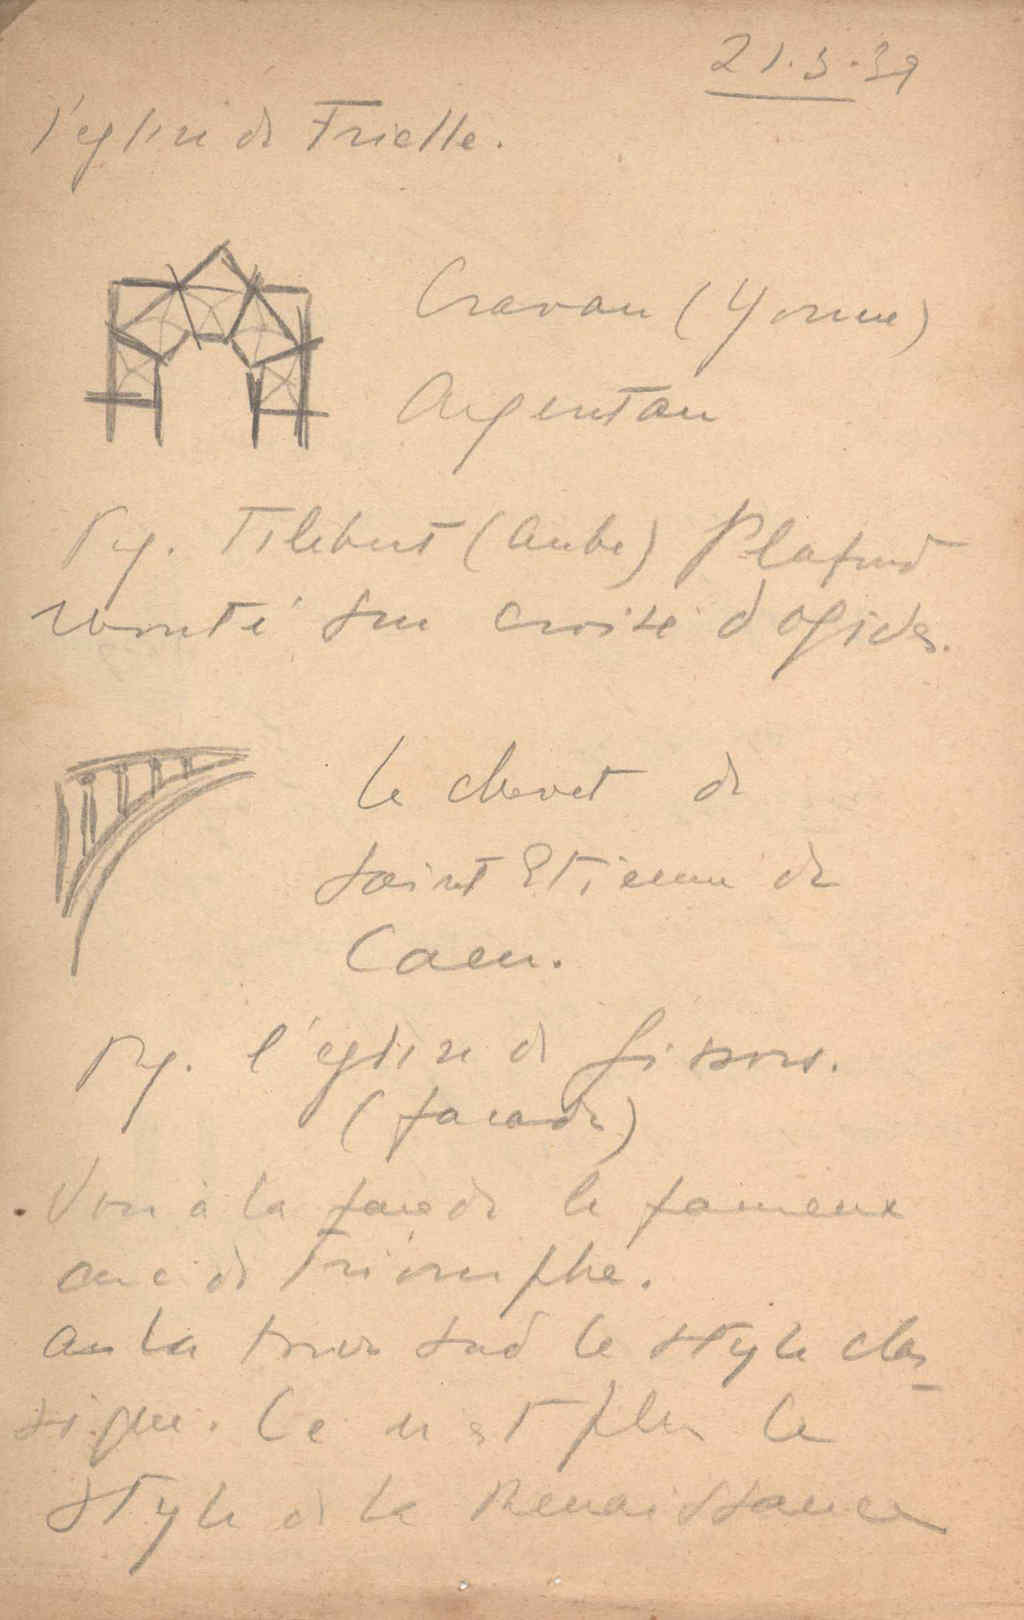 21.3.39
l'eglise de Trielle.
Cravan (Yonne)
Argentan
Py. (Aube) Plafond
monté sur croisé d'ogides.
Le chevet de
Saint Etienne de
Caen.
Py. l'église de Gisors.
(facade)
Voir à la facade le fameux
arc de Triomphe.
a la tour sud le style clas
sique. Ce n'est plus le
style de la Renaissance